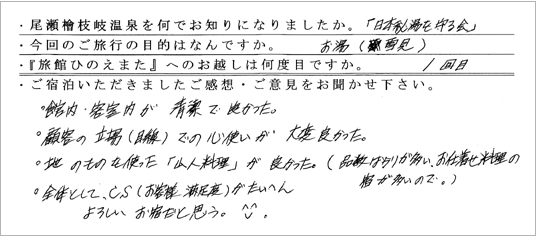 ・尾瀬檜枝岐温泉を何でお知りになりましたか。「日本秘湯を守る会」
・今回のご旅行の目的はなんですか。 お湯(雪見)
・『旅館ひのえまた』へのお越しは何度目ですか。 1回目
・ご宿泊いただきましたご感想・ご意見をお聞かせ下さい。
○館内・客室内が清潔で良かった。
○顧客の立場(目線)での心使いが大変良かった。
○地のものを使った「山人料理」が良かった。(品数ばかりが多い、お仕着せ料理の
宿が多いので。)
○全体として、CS(お客様満足度)がたいへん
よろしいお宿だと思う。^^。